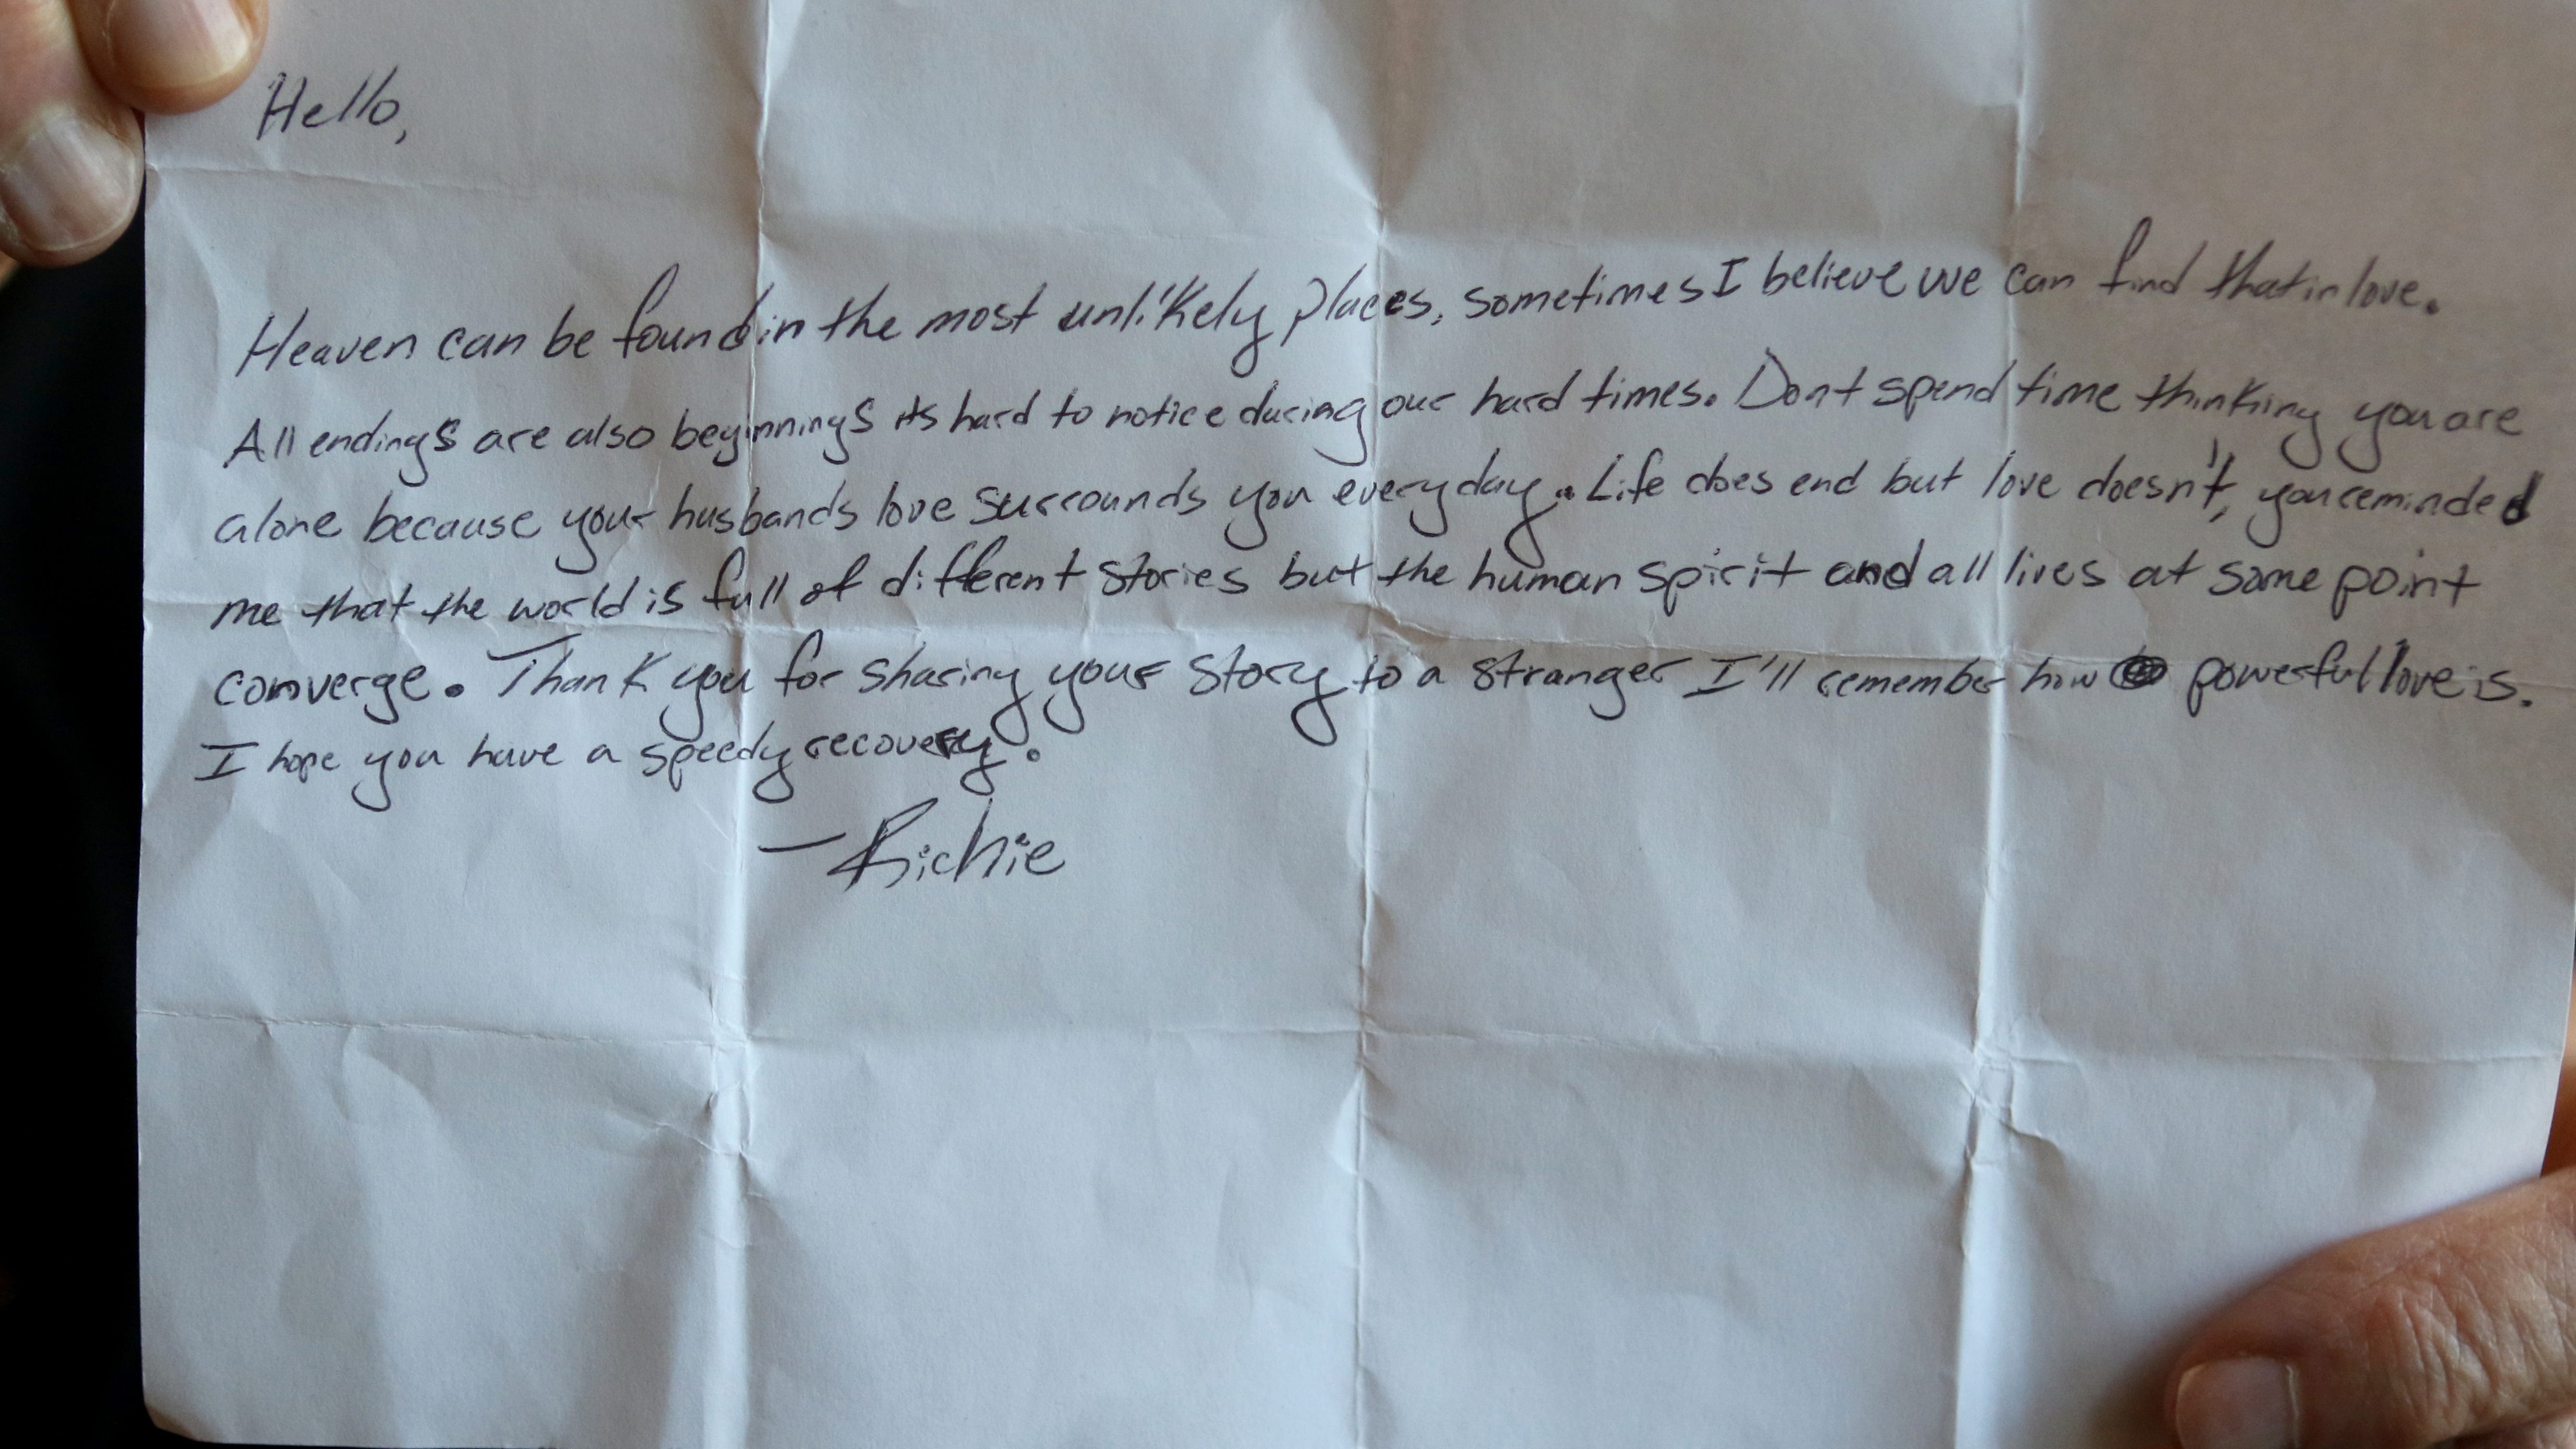 Hello,
Heaven can be found in the most unlikely places, sometimes I believe we can find that in love.
All endings are also beginnings its hard to notice during our hard times. Dont spend time thinking you are
alone because your husbands love surrounds you everyday. Life does end but love doesn't, you reminded
me that the world is full of different stories but the human spirit and all lives at some point
converge. Thank you for sharing your story to a stranger I'll remember how powerful love is.
I hope you have a speedy recovery.
- Richie